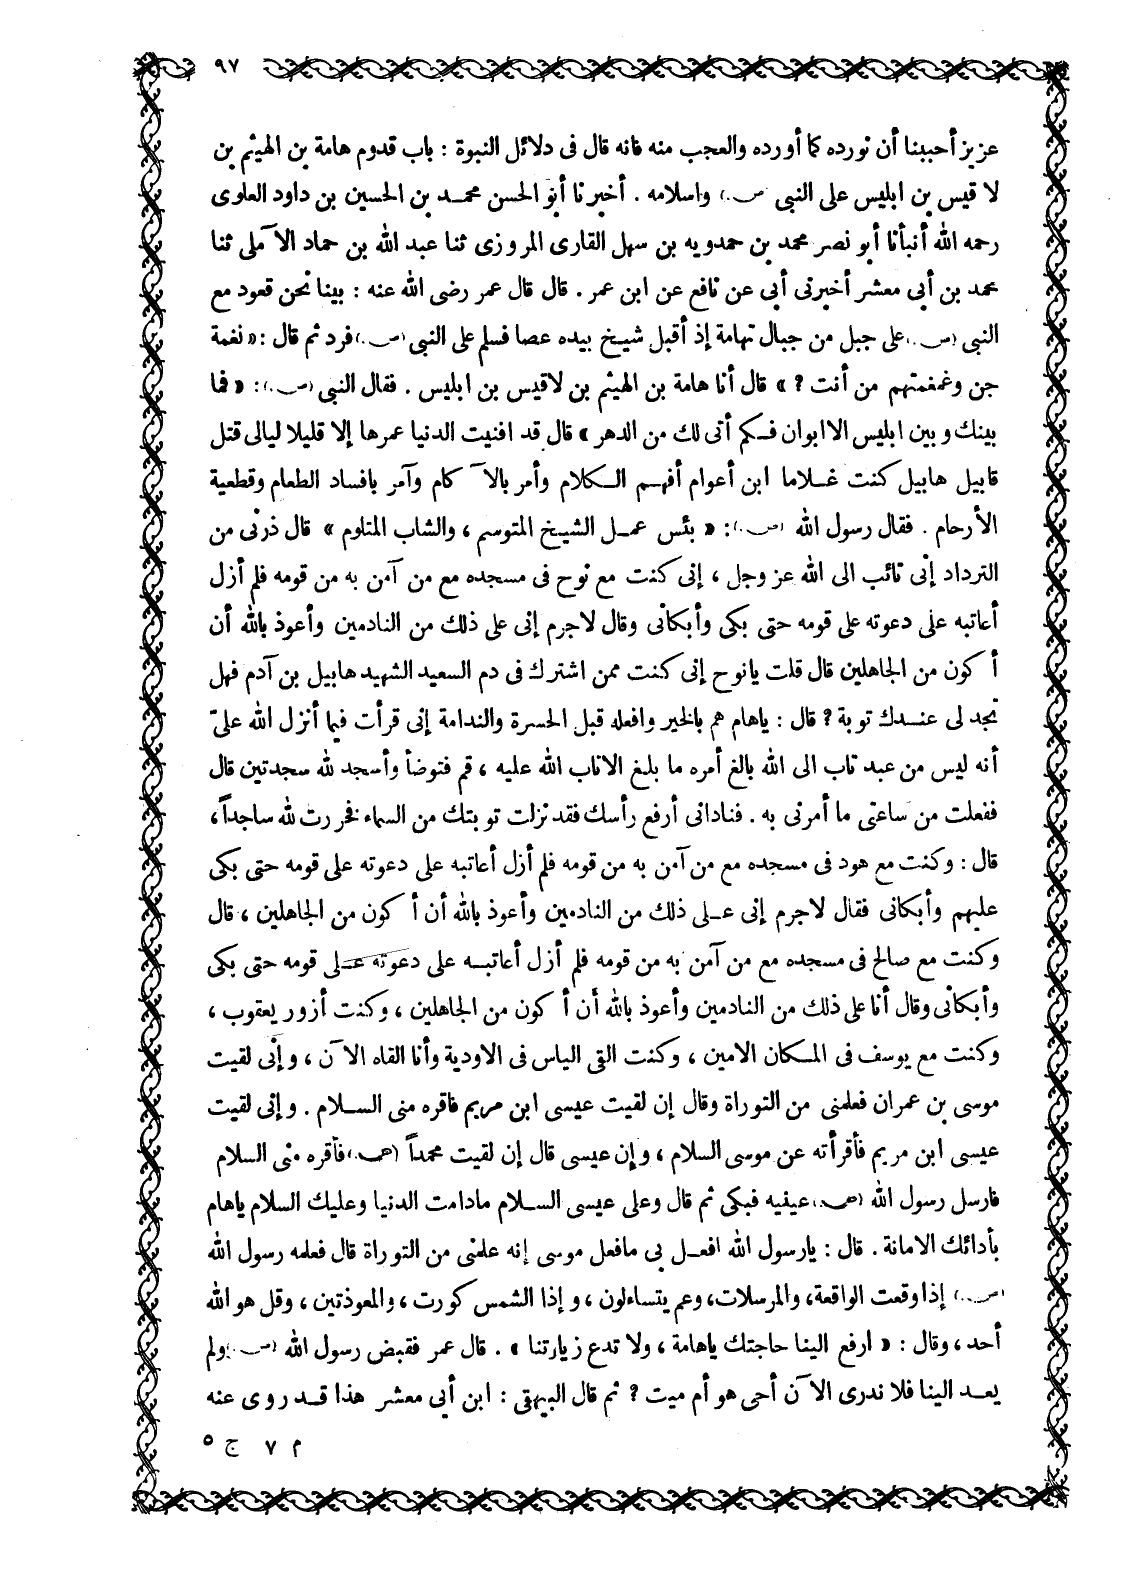 ٩٧
عزيز أحببنا أن نورده كما أورده والعجب منه فانه قال فى دلائل النبوة : باب قدوم هامة بن الهيثم بن
لا قيس بن ابليس على النبى (ص.) واسلامه . أخبرنا أبو الحسن محمد بن الحسين بن داود العلوى
رحمه الله أنبأنا أبو نصر محمد بن حمدويه بن سهل القارى المروزى ثنا عبد الله بن حماد الآملى ثنا
محمد بن أبى معشر أخبرنى أبى عن نافع عن ابن عمر . قال قال عمر رضى الله عنه : بينا نحن قعود مع
النبى (ص.) على جبل من جبال تهامة إذ أقبل شيخ بيده عصا فسلم على النبى (ص.) فرد ثم قال : « نغمة
جن وغمغمتهم من أنت ? » قال أنا هامة بن الهيثم بن لاقيس بن ابليس . فقال النبى (ص.) : « فما
بينك وبين ابليس الا ابوان فكم أتى لك من الدهر » قال قد افنيت الدنيا عمرها إلا قليلا ليالى قتل
قابيل هابيل كنت غلاما ابن أعوام أفهم الكلام وأمر بالآ كام وآمر بافساد الطعام وقطعية
الأرحام . فقال رسول الله (ص.) : « بئس عمل الشيخ المتوسم ، والشاب المتلوم » قال ذرنى من
الترداد إنى تائب الى الله عز وجل ، إنى كنت مع نوح فى مسجده مع من آمن به من قومه فلم أزل
أعاتبه على دعوته على قومه حتى بكى وأبكانى وقال لاجرم إنى على ذلك من النادمين وأعوذ بالله أن
أ كون من الجاهلين قال قلت يانوح إنى كنت ممن اشترك فى دم السعيد الشهيد هابيل بن آدم فهل
تجد لى عندك توبة ? قال : ياهام هم بالخير وافعله قبل الحسرة والندامة إنى قرأت فيما أنزل الله علىّ
أنه ليس من عبد تاب الى الله بالغ أمره ما بلغ الاتاب الله عليه ، قم فتوضأ وأسجد لله سجدتين قال
ففعلت من ساعتى ما أمرنى به . فنادانى أرفع رأسك فقد نزلت توبتك من السماء فخررت لله ساجداً ،
قال : وكنت مع هود فى مسجده مع من آمن به من قومه فلم أزل أعاتبه على دعوته على قومه حتى بكى
عليهم وأبكانى فقال لاجرم إنى على ذلك من النادمين وأعوذ بالله أن أ كون من الجاهلين ، قال
وكنت مع صالح فى مسجده مع من آمن به من قومه فلم أزل أعاتبه على دعوته على قومه حتى بكى
وأبكانى وقال أنا على ذلك من النادمين وأعوذ بالله أن أ كون من الجاهلين ، وكنت أزور يعقوب ،
وكنت مع يوسف فى المكان الامين ، وكنت القى الياس فى الاودية وأنا القاه الآن ، وإنى لقيت
موسى بن عمران فعلمنى من التوراة وقال إن لقيت عيسى ابن مريم فاقره منى السلام . وإنى لقيت
عيسى ابن مريم فأقرأته عن موسى السلام ، وإن عيسى قال إن لقيت محمداً (ص.) فأقره منى السلام
فارسل رسول الله (ص.) عينيه فبكى ثم قال وعلى عيسى السلام مادامت الدنيا وعليك السلام ياهام
بأدائك الامانة . قال : يارسول الله افعل بى مافعل موسى إنه علمنى من التوراة قال فعلمه رسول الله
(ص.) إذا وقعت الواقعة، والمرسلات، وعم يتساءلون ، وإذا الشمس كورت ، والمعوذتين ، وقل هو الله
أحد ، وقال : « ارفع الينا حاجتك ياهامة ، ولا تدع زيارتنا » . قال عمر فقبض رسول الله (ص.) ولم
يعد الينا فلا ندرى الآن أحى هو أم ميت ? ثم قال البيهقى : ابن أبى معشر هذا قد روى عنه
م ٧ ج ٥